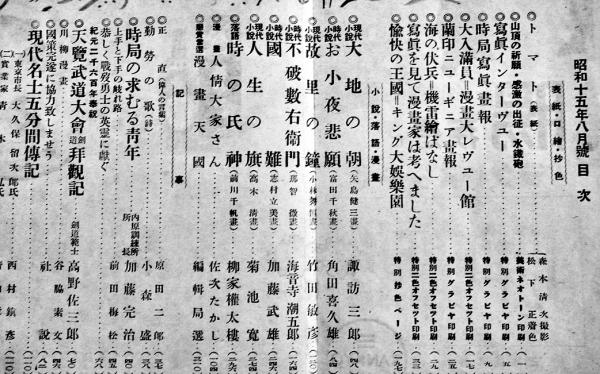 昭和十五年八月號目次
表紙・口繪・抄色
◎トマト（表紙）
◎山頂の祈願・感激の出征・水鐵砲
◎寫眞インターヴュー
◎時局寫眞畫報
◎大入滿員＝漫畫大レヴュー館
◎蘭印ニューギニア畫報
◎海の伏兵＝機雷繪ばなし
◎寫眞を見て漫畫家は考へました
◎愉快の王國＝キング大娛樂園
松下正壽色
美術ネオトーン印刷…（一）
特別グラビヤ印刷…（五）
特別グラビヤ印刷…（九）
特別二色オフセット印刷
特別グラビヤ印刷
特別二色オフセット印刷
特別二色オフセット印刷
特別抄色ページ
小說・落語・漫畫
◎現代小說 大地の朝（矢島健三畫）諏訪三郎
◎時代小說 お小夜悲願（富田千秋畫）角田喜久雄
◎現代小說 故里の鐘 竹田敏彥
◎時代小說 不破數右衞門 海音寺潮五郎
◎時代小說 國難（志村立美畫）加藤武雄
◎現代小說 人生の旗（高木清畫）菊池寬
◎落語 時の氏神（細川千帆畫）柳家權太樓
◎漫畫 人情大家さん 佐次たかし
◎懸賞當選 漫畫天國 編輯局選
記事
◎正直（偉人の言葉）原田二郎
◎勤勞の歌（詩）小森盛
◎時局の求むる青年 內原訓練所所長 加藤完治
◎上手と下手の岐れ路 前田梅松
◎恭しく戰歿勇士の英靈に獻ぐ
紀元二千六百年奉祝
◎天覽武道大會拜觀記 劍道範士 高野佐三郎
◎川柳漫畫 谷脇素文
◎國策完遂に協力致しませう 社說
◎現代名士五分間傳記
（一）東京市長 大久保留次郎氏 西村鎮彥
（二）實業家